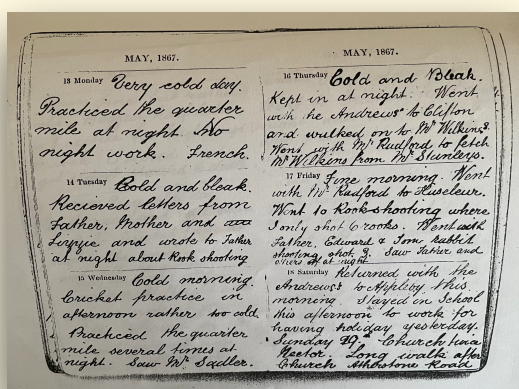 MAY, 1867.
13 Monday Very cold day.
Practiced the quarter
mile at night. No
night work. French.
14 Tuesday Cold and bleak.
Recieved letters from
Father, Mother and
Lizzie and wrote to Father
at night about Rook shooting
15 Wednesday Cold morning.
Cricket practice in
afternoon rather too cold.
Practiced the quarter
mile several times at
night. Saw Mr. Sadler.
MAY, 1867.
16 Thursday Cold and Bleak.
Kept in at night. Went
with the Andrews to Clifton
and walked on to Mr Wilkins.
Went with Mr Rudford to fetch
Mr Wilkins from Mr Stunleys.
17 Friday Fine morning. Went
with Mr Rudford to
Went to Rook-shooting where
I only shot 6 rooks. Went with
Father, Edward & Tom rabbit
shooting shot 3. Saw Father and
others at night.
18 Saturday Returned with the
Andrews to Appleby this
morning. Stayed in School
this afternoon to work for
having holiday yesterday.
Sunday 19th Church
Rector. Long walk after
Church Atherstone Road